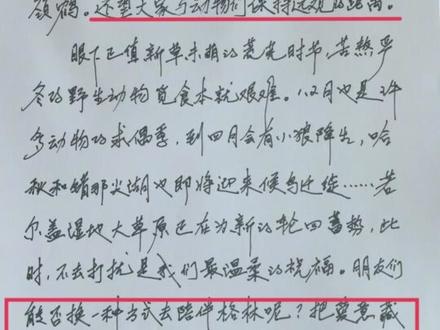 颈鹤。还望大家与动物们保持远观的距离。
眼下正值新草未萌的荒芜时节,苦熬严
冬的野生动物觅食本就艰难。1、2月也是许
多动物的求偶季,到四月会有小狼降生,哈
秋和错那尖湖也即将迎来候鸟迁徙……若
尔盖湿地大草原正在为新的轮回蓄势,此
时,不去打扰是我们最温柔的祝福。朋友们
能否换一种方式去陪伴格林呢?把爱意藏